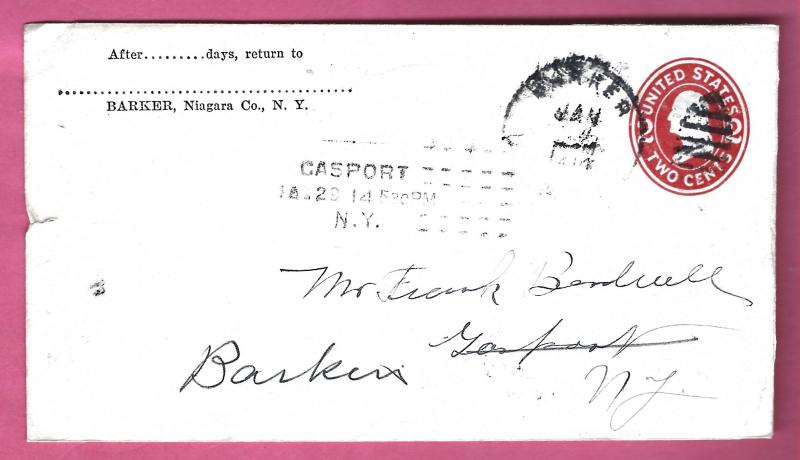 After.........days, return to
BARKER, Niagara Co., N. Y.
BARKER
JAN
1914
UNITED STATES
2 2
TWO CENTS
GASPORT
JA.29 14 530PM
N.Y.
Mr Frank Bardwell
Gasport
Barker
N.Y.